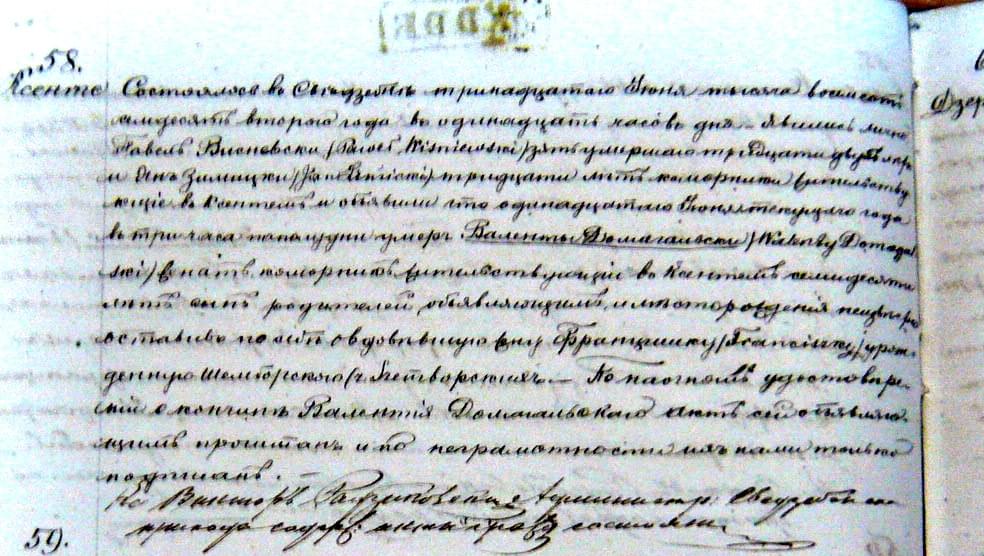 58.
Ксенте Состоялось во тринадцатаго Июня тысяча восемсотъ
семдесятъ втораго года въ одинадцать часовъ дня. Явились лично
Павелъ Висневски /Paweł Wiśniewski/ зять умершаго тридцати двухъ
и Янъ Зимицки /Jan тридцати лѣтъ коморники жительству
ющіе въ Ксентемъ и объявили что одинадцатаго Июня текущаго года
въ три часа пополудни умеръ Валенты Домагальски /Walenty Domagal
ski/ женатъ, коморникъ жительствующій въ Ксентемъ семидесяти
лѣтъ сынъ родителей, объявляющимъ, и мѣсторожденія
оставивъ по себѣ овдовѣвшую жену Францишку /Franciszkę/ урож
денную По настномъ удостовѣре
ніи о кончинѣ Валентія Домагальскаго актъ сей объявляю
щимъ прочитанъ и по неграмотности ихъ нами только
подписанъ. —
Кс Викторъ Администр:
прихода содерж:
59.
Дзер